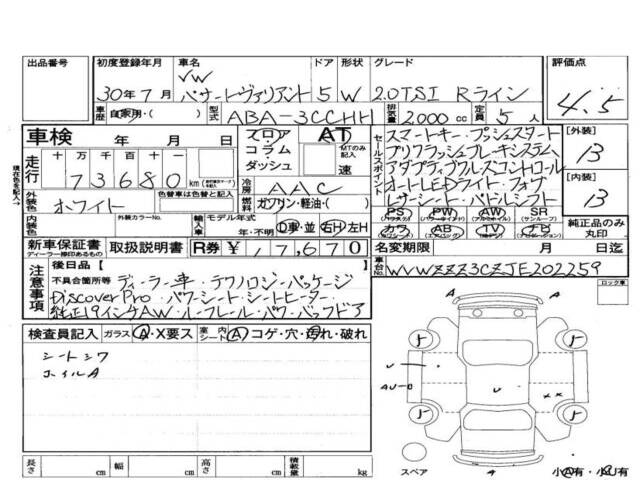 出品番号
初度登録年月
車名
ドア
形状
グレード
評価点
30年7月
VW
パサートヴァリアント
5
W
2.0TSI Rライン
4.5
車歴
自家用・( )
型式
ABA-3CCHH
排気量
2000 cc
定員
5 人
車検
年 月 日
フロア
コラム
ダッシュ
AT
MTのみ記入
速
セールスポイント
スマートキー・プッシュスタート
プリクラッシュブレーキシステム
アダプティブクルーズコントロール
オートLEDライト・フォグ
レザーシート・パドルシフト
[外装]
13
[内装]
13
走行
十 万 千 百 十 一
73680 km
冷房
AAC
燃料
ガソリン・軽油・( )
外装色
ホワイト
色替車は色替と記入
内装色
外装カラーNo.
輸入車
モデル年式
年・不明
D車・並
右H・左H
PS
(パワステ)
PW
(パワーウィンド)
AW
(アルミホイル)
SR
(サンルーフ)
カワ
AB
(エアバッグ)
TV
(テレビ)
ナビ
純正品のみ
丸印
新車保証書
ディーラー捺印あるもの
取扱説明書
R券
¥17,670
名変期限
月 日迄
車台No.
WVWZZZ3CZJE202259
注意事項
後日品[ ]
不具合箇所等
ディーラー車・テクノロジーパッケージ
Discover Pro・パワーシート・シートヒーター
純正19インチAW・ルーフレール・パワーバックドア
ロック車
検査員記入
ガラス
A・X要ス
室内
シート
A コゲ・穴・汚れ・破れ
シートシワ
ホイルA
AU-0
U
U
××
スペア
小A有・小U有
長さ
cm
幅
cm
高さ
cm
積載量
kg